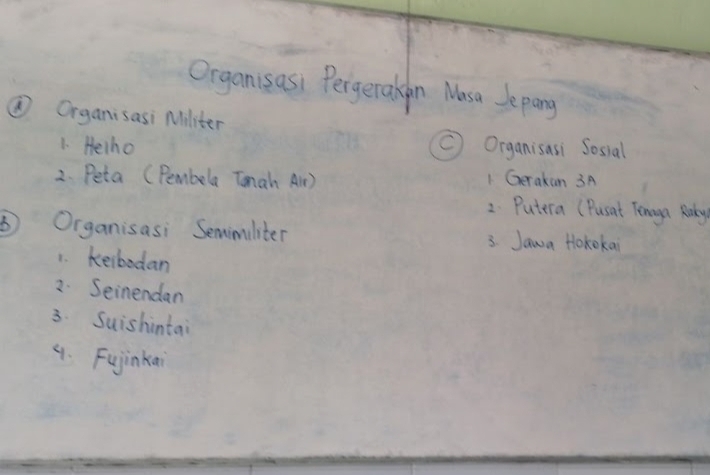 Organisasi Pergerakan Masa Jepang
A Organisasi Militer
1. Heiho
2. Peta (Pembela Tanah Air)
B Organisasi Semimiliter
1. Keibodan
2. Seinendan
3. Suishintai
4. Fujinkai
C Organisasi Sosial
1. Gerakan 3A
2. Putera (Pusat Tenaga
3. Jawa Hokokai